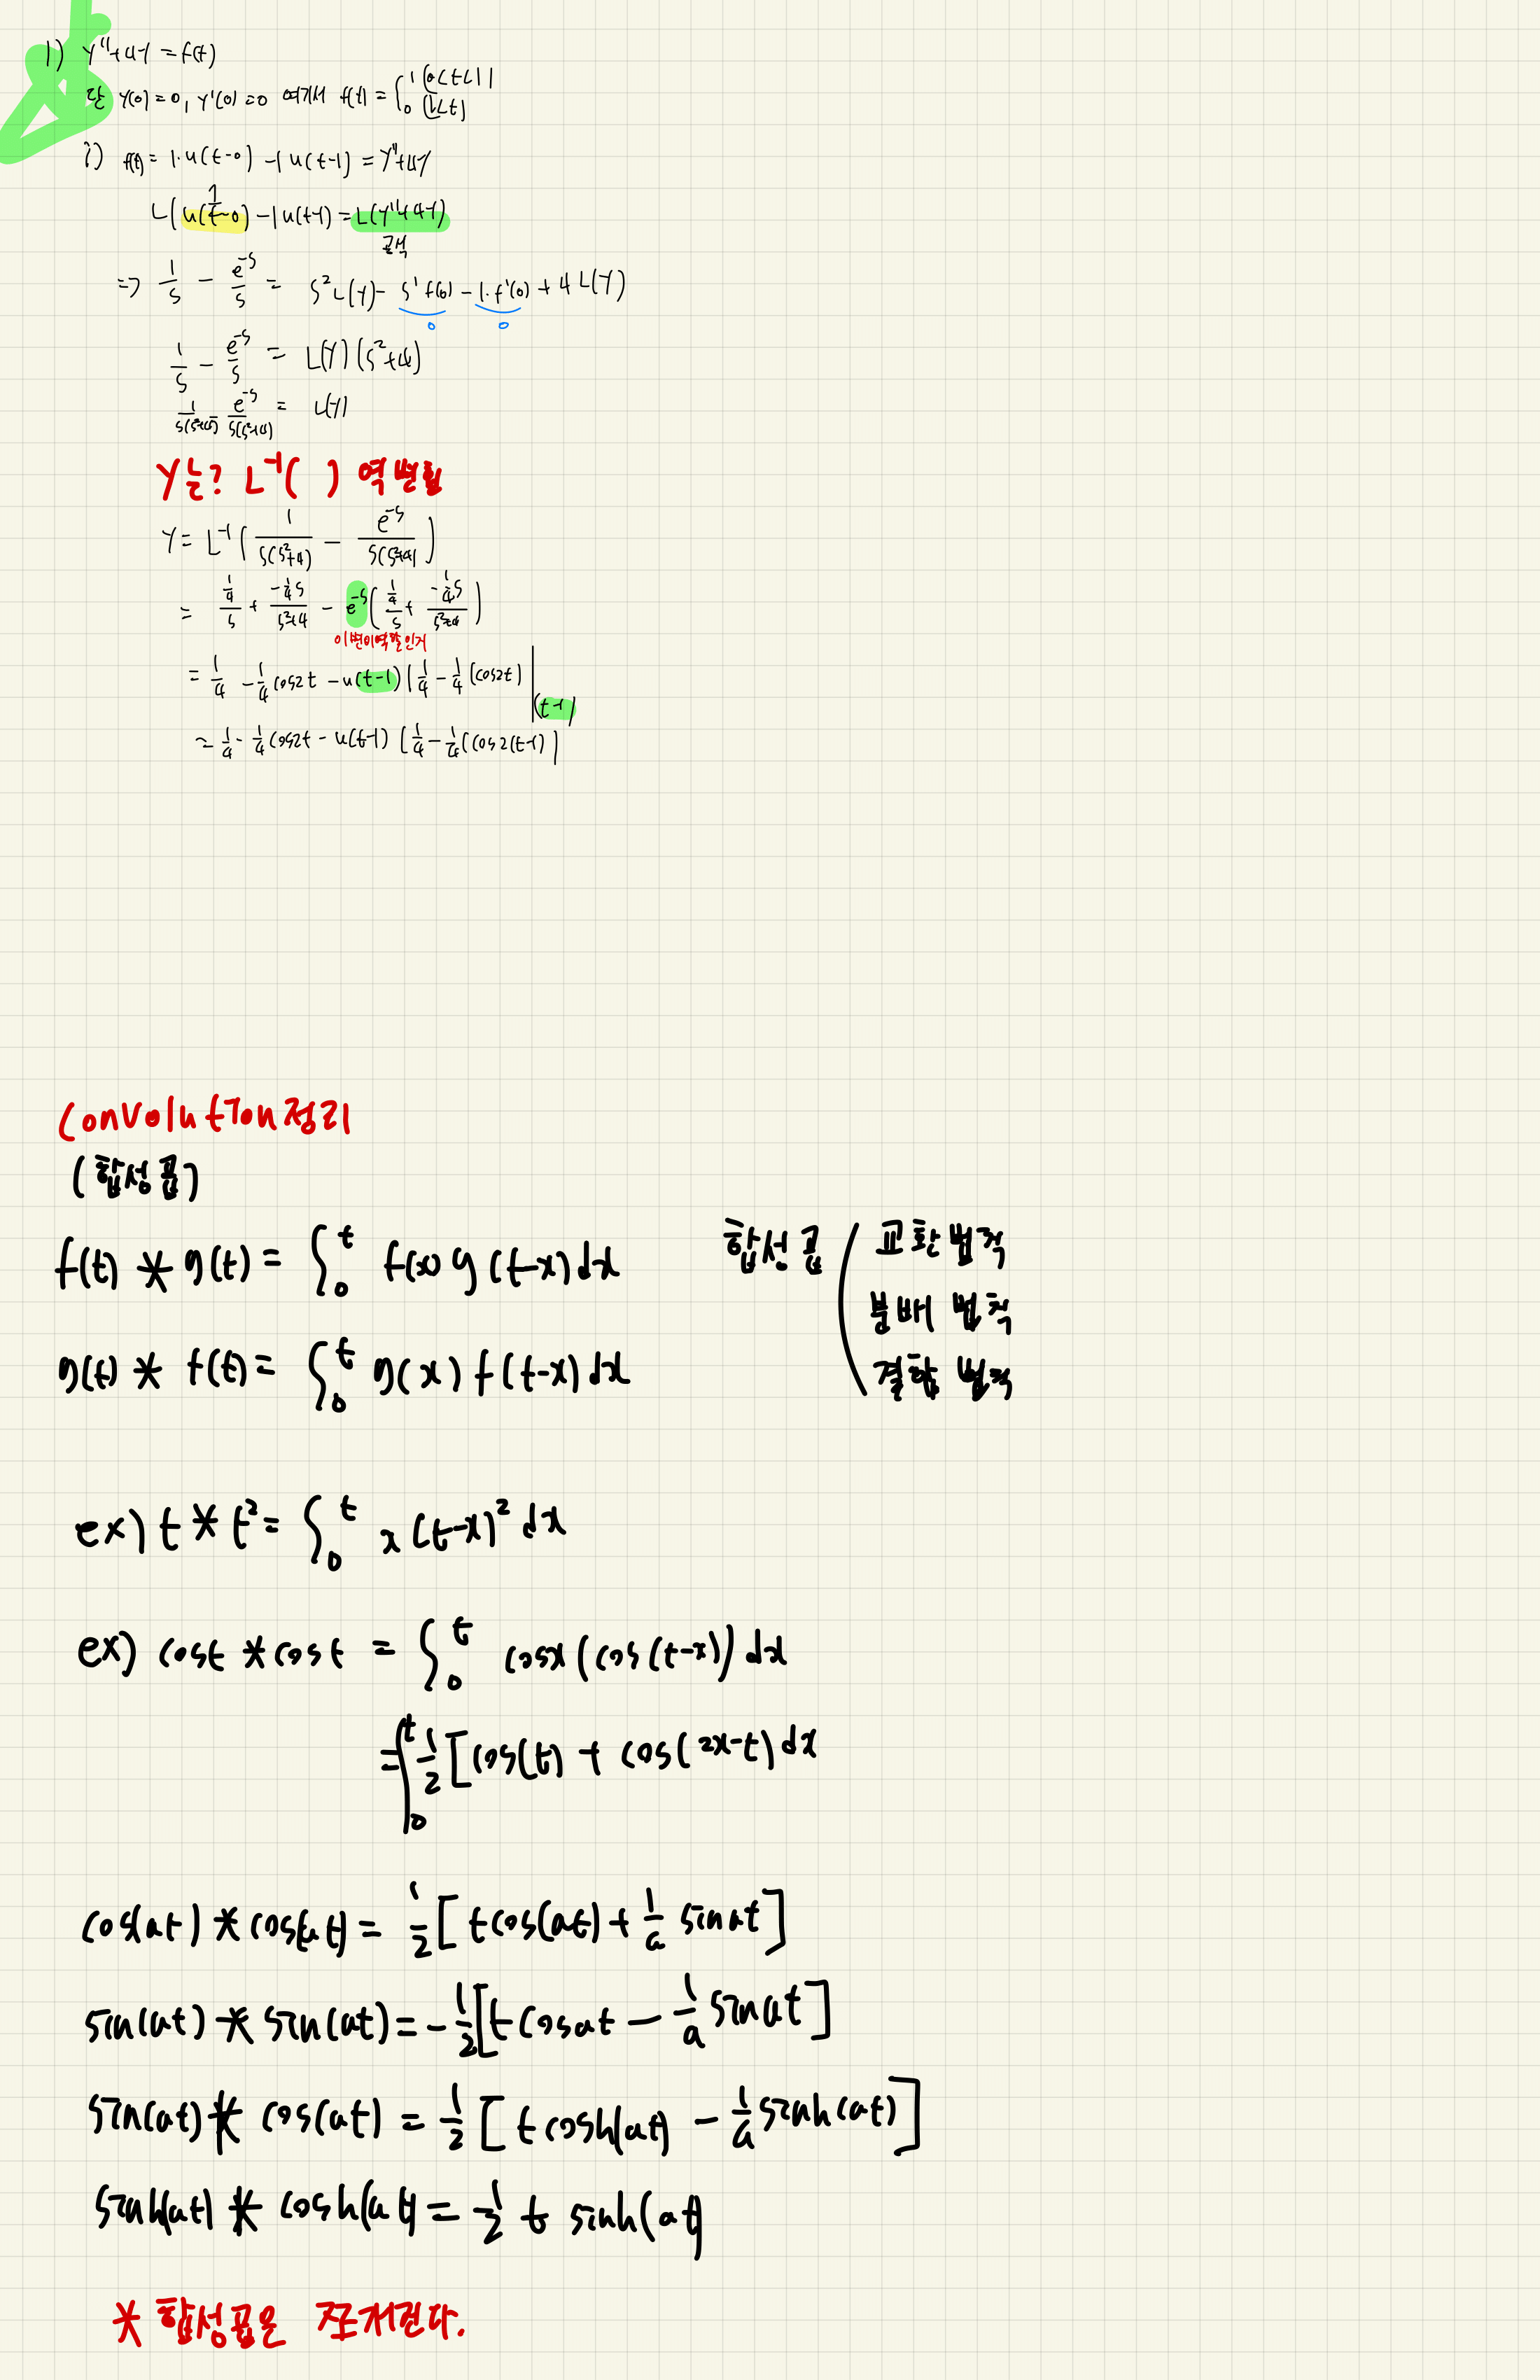 1) y''+4y = f(t)
단 y(0)=0, y'(0)=0 여기서 f(t) = { 1 (0<t<1)
0 (1<t)
i) f(t) = 1·u(t-0) -1u(t-1) = y''+4y
L(u(t-0) -1u(t-1) = L(y''+4y)
공식
=> 1/s - e^-s/s = s²L(y) - s'f(0) - 1·f'(0) + 4L(y)
0 0
1/s - e^-s/s = L(y)(s²+4)
1/s(s²+4) - e^-s/s(s²+4) = L(y)
y는? L⁻¹( ) 역변환
y = L⁻¹(1/s(s²+4) - e^-s/s(s²+4))
= 1/4/s + -1/4s/s²+4 - e^-s(1/4/s + -1/4s/s²+4)
= 1/4 - 1/4cos2t - u(t-1)(1/4 - 1/4(cos2t)|(t-1)
= 1/4 - 1/4cos2t - u(t-1)[1/4 - 1/4(cos2(t-1)]
Convolution정리
(합성곱)
f(t) * g(t) = ∫₀ᵗ f(x)g(t-x)dx
g(t) * f(t) = ∫₀ᵗ g(x)f(t-x)dx
합성곱 ( 교환법칙
분배 법칙
결합 법칙
ex) t * t² = ∫₀ᵗ x(t-x)²dx
ex) cost * cost = ∫₀ᵗ cosx(cos(t-x))dx
= ∫₀ᵗ 1/2[cos(t) + cos(2x-t)dx
cos(at) * cos(at) = 1/2[tcos(at) + 1/a sinat]
sin(at) * sin(at) = -1/2[tcosat - 1/a sinat]
sin(at) * cos(at) = 1/2[tcosh(at) - 1/a sinh(at)]
sinh(at) * cosh(at) = 1/2 t sinh(at)
* 합성곱은 쪼개진다.